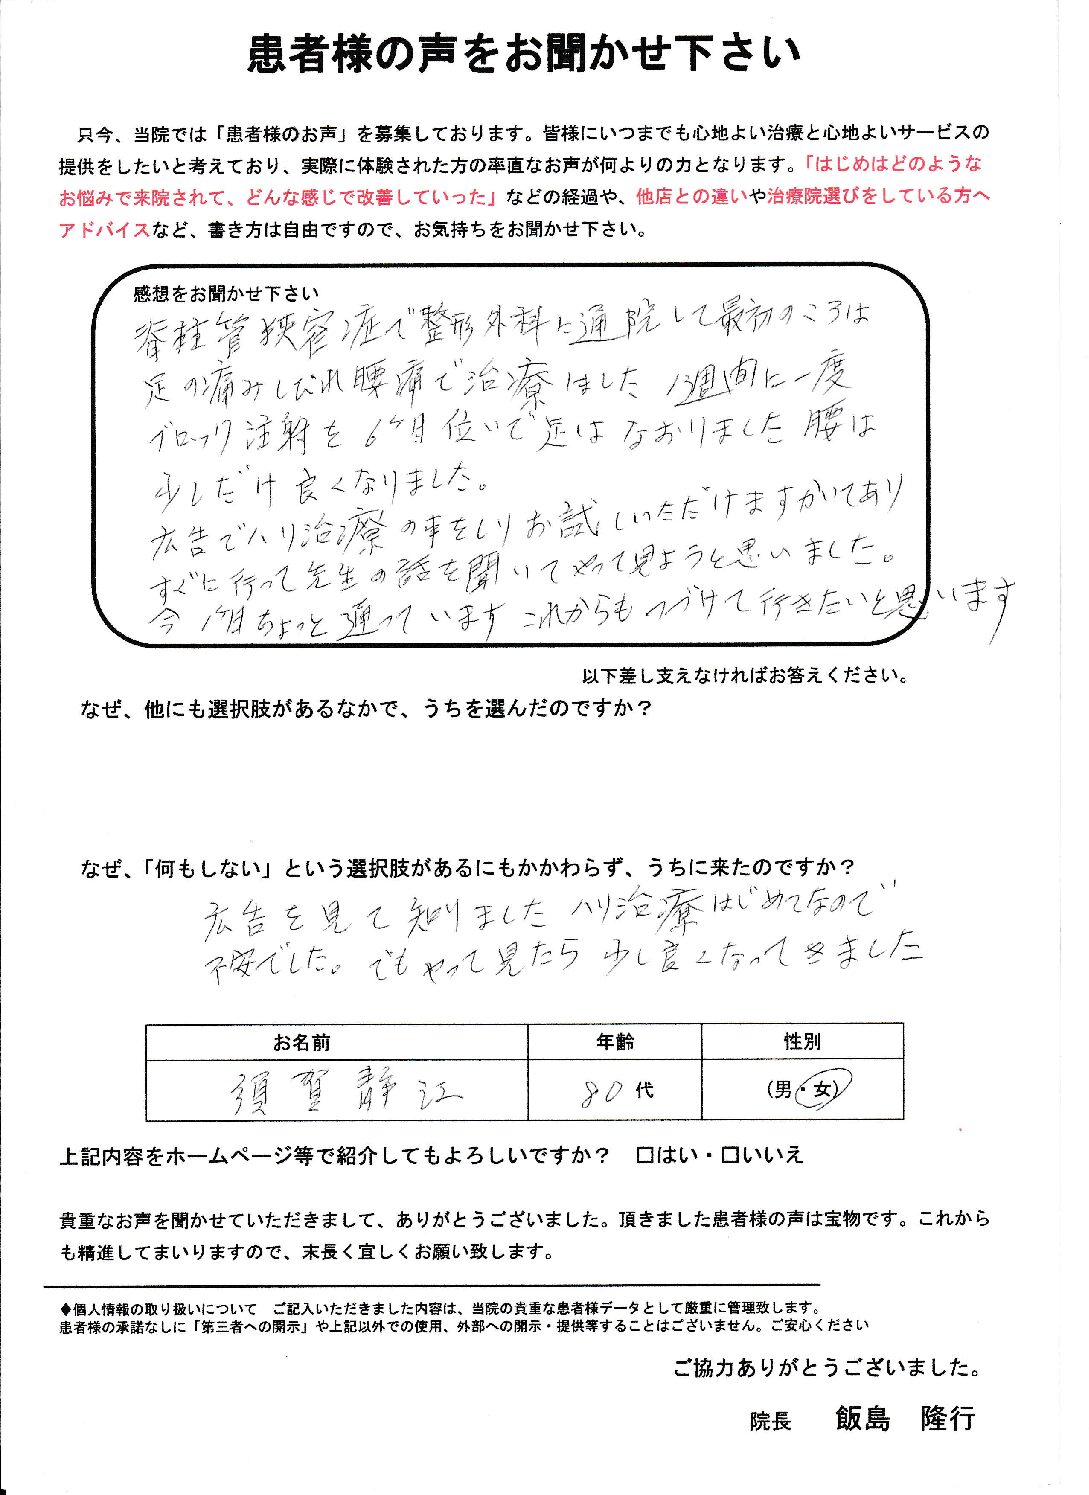 患者様の声をお聞かせ下さい
只今、当院では「患者様のお声」を募集しております。皆様にいつまでも心地よい治療と心地よいサービスの
提供をしたいと考えており、実際に体験された方の率直なお声が何よりの力となります。「はじめはどのような
お悩みで来院されて、どんな感じで改善していった」などの経過や、他店との違いや治療院選びをしている方へ
アドバイスなど、書き方は自由ですので、お気持ちをお聞かせ下さい。
感想をお聞かせ下さい
脊柱管狭窄症で整形外科に通院して最初のころは
足の痛みしびれ腰痛で治療はました 1週間に一度
ブロック注射を6ヶ月位いで足はなおりました 腰は
少しだけ良くなりました。
広告でハリ治療の事をしりお試しいただけますかいてあり
すぐに行って先生の話を聞いてやって見ようと思いました。
今1ヶ月ちょっと通っています これからもつづけて行きたいと思います
以下差し支えなければお答えください。
なぜ、他にも選択肢があるなかで、うちを選んだのですか？
なぜ、「何もしない」という選択肢があるにもかかわらず、うちに来たのですか？
広告を見て知りました ハリ治療はじめてなので
不安でした。でもやって見たら少し良くなってきました
お名前 年齢 性別
須賀静江 80代 (男・女)
上記内容をホームページ等で紹介してもよろしいですか？ □はい・□いいえ
貴重なお声を聞かせていただきまして、ありがとうございました。頂きました患者様の声は宝物です。これから
も精進してまいりますので、末長く宜しくお願い致します。
◆個人情報の取り扱いについて ご記入いただきました内容は、当院の貴重な患者様データとして厳重に管理致します。
患者様の承諾なしに「第三者への開示」や上記以外での使用、外部への開示・提供等することはございません。ご安心ください
ご協力ありがとうございました。
院長 飯島 隆行